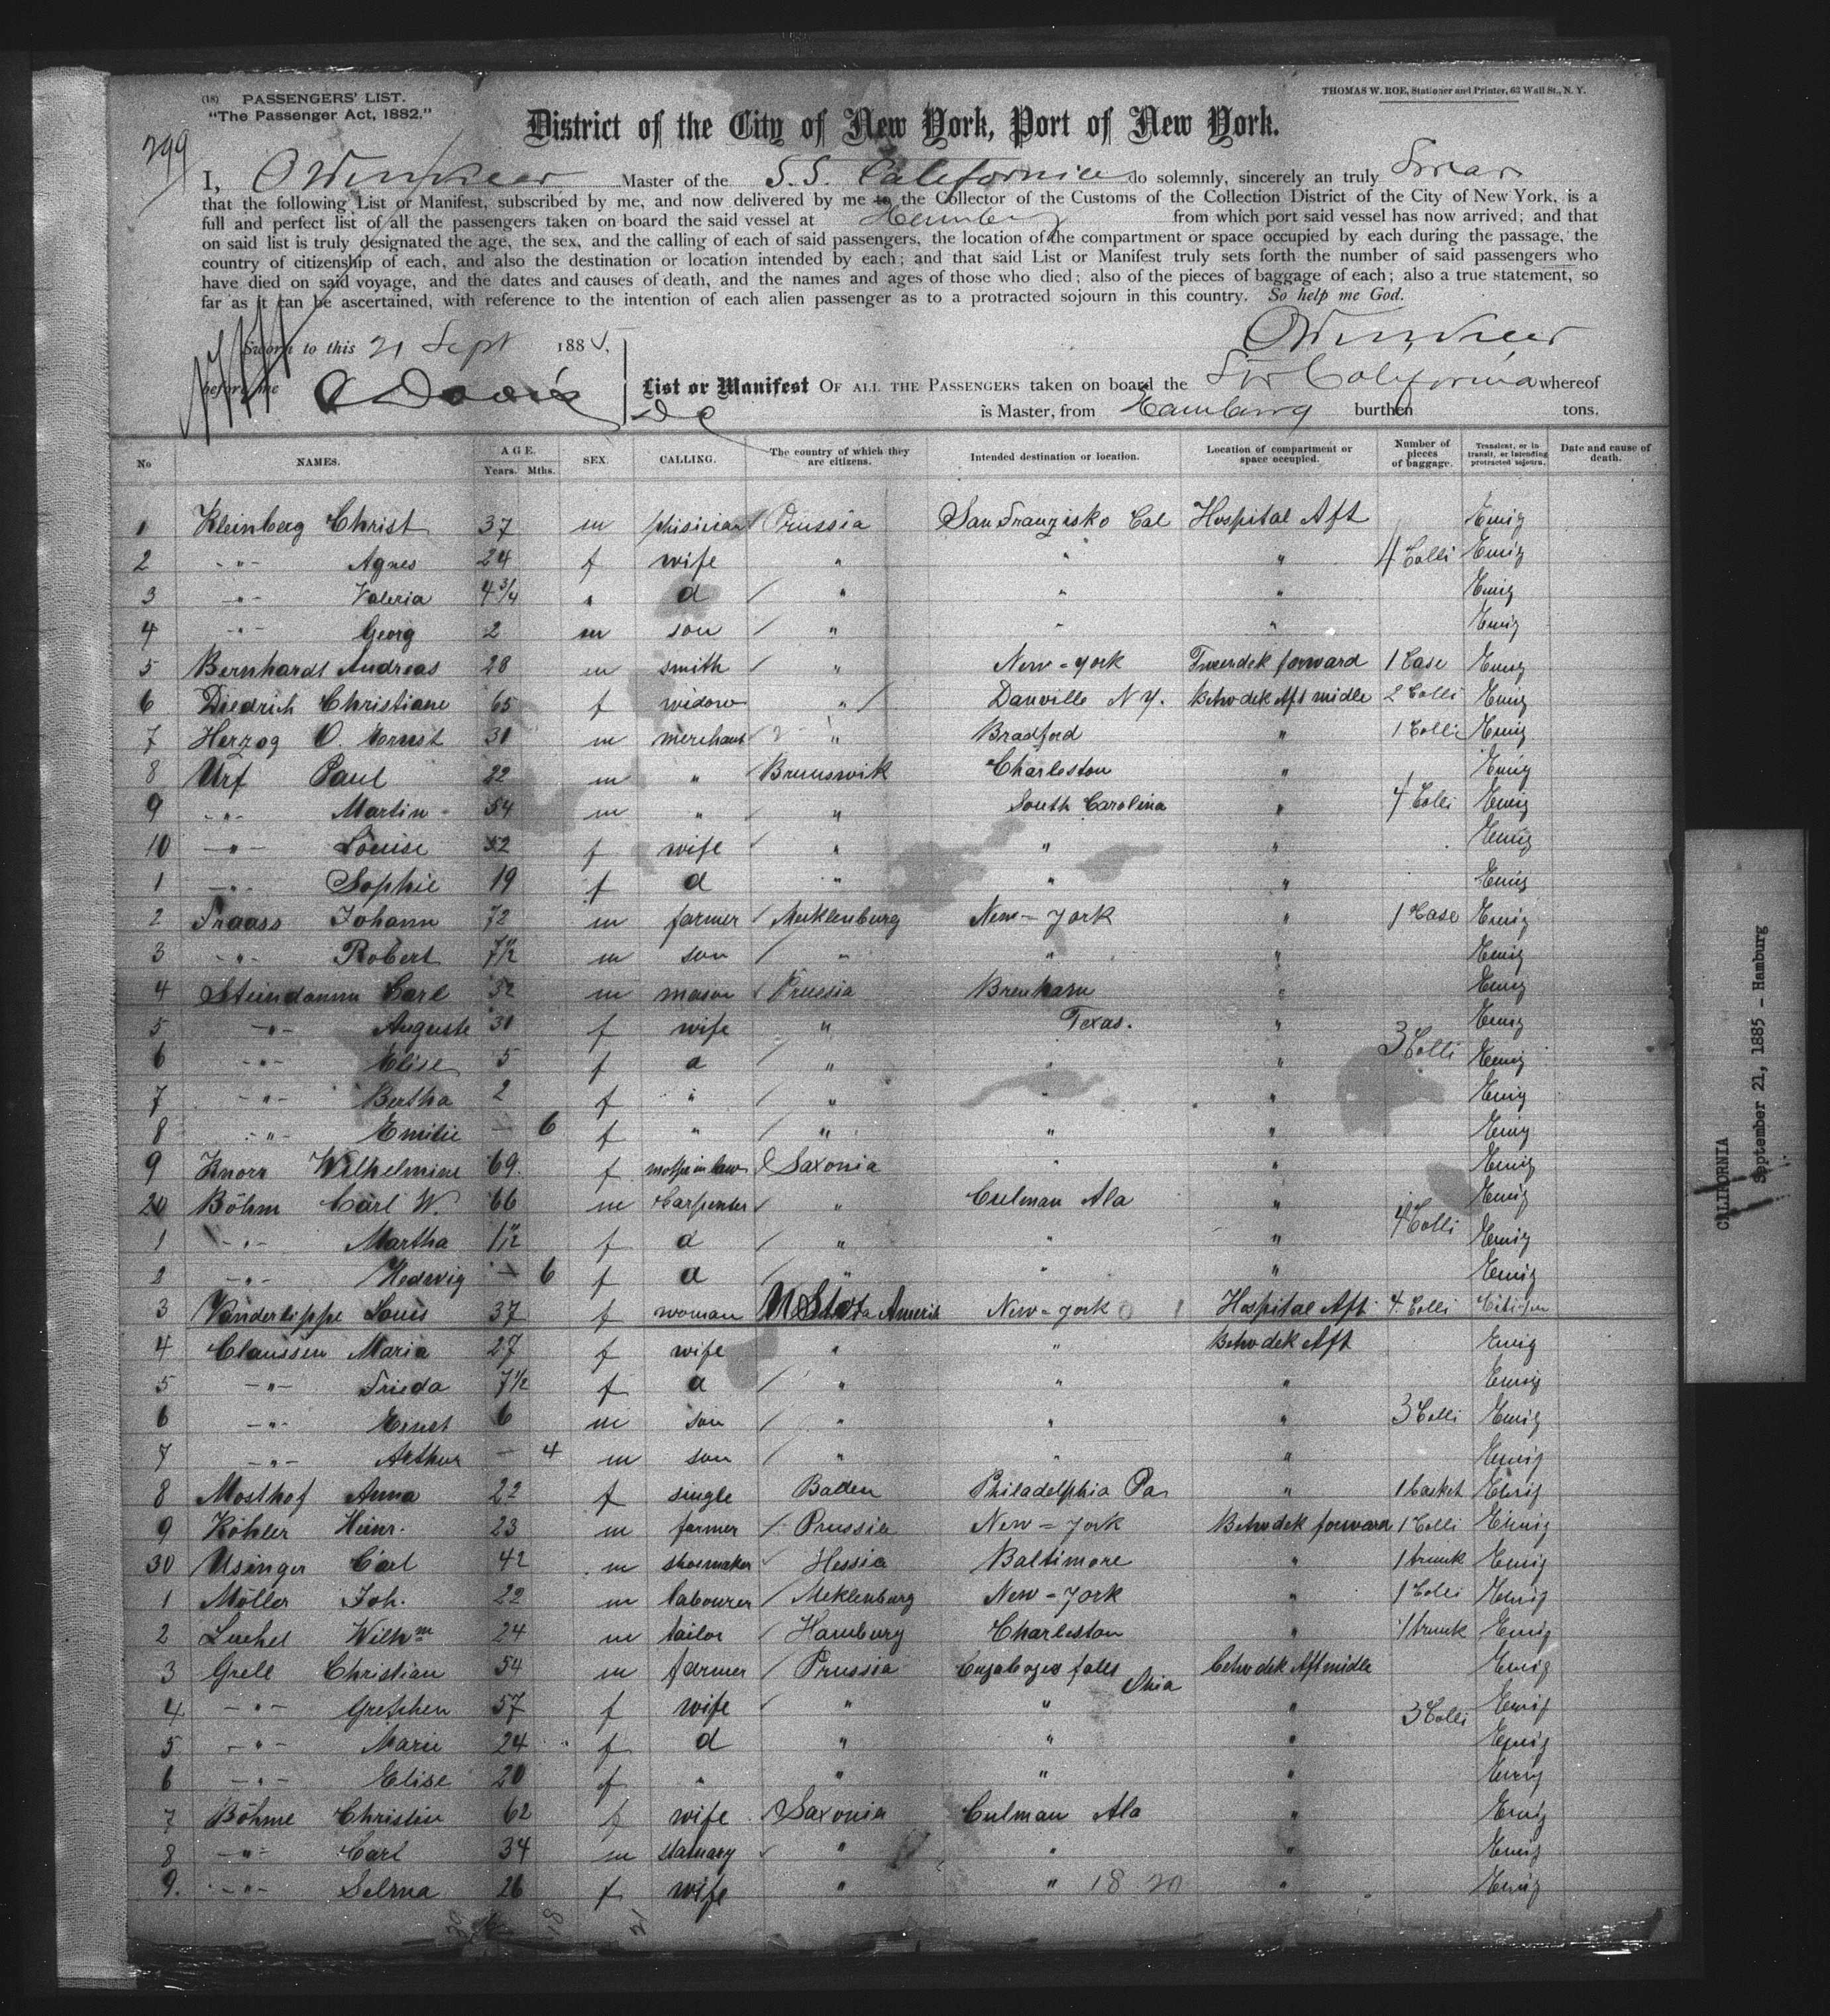 (18) PASSENGERS' LIST.
"The Passenger Act, 1882."
THOMAS W. ROE, Stationer and Printer, 63 Wall St., N. Y.
299
District of the City of New York, Port of New York.
I, Master of the S.S. California do solemnly, sincerely an truly Swear
that the following List or Manifest, subscribed by me, and now delivered by me to the Collector of the Customs of the Collection District of the City of New York, is a
full and perfect list of all the passengers taken on board the said vessel at Hamburg from which port said vessel has now arrived; and that
on said list is truly designated the age, the sex, and the calling of each of said passengers, the location of the compartment or space occupied by each during the passage, the
country of citizenship of each, and also the destination or location intended by each; and that said List or Manifest truly sets forth the number of said passengers who
have died on said voyage, and the dates and causes of death, and the names and ages of those who died; also of the pieces of baggage of each; also a true statement, so
far as it can be ascertained, with reference to the intention of each alien passenger as to a protracted sojourn in this country. So help me God.
Sworn to this 21 Sept 1885,
before me Davis
List or Manifest OF ALL THE PASSENGERS taken on board the Str California whereof
is Master, from Hamburg burthen tons.
No NAMES. AGE. Years. Mths. SEX. CALLING. The country of which they are citizens. Intended destination or location. Location of compartment or space occupied. Number of pieces of baggage. Transient, or in transit, or intending protracted sojourn. Date and cause of death.
1 Kleinberg Christ 37 m phisician Prussia San Franzisko Cal Hospital Aft Emig
2 -"- Agnes 24 f wife " " " 4 Colli Emig
3 -"- Valeria 4 3/4 " d " " " Emig
4 -"- Georg 2 m son " " " Emig
5 Bernhardt Andreas 28 m smith " New-York Tweendek forward 1 Case Emig
6 Diedrich Christiane 65 f widow " Danville N Y. Betwdek Aft midle 2 Colli Emig
7 Herzog O. Ernst 31 m merchant " Bradford " 1 Colli Emig
8 Urf Paul 22 m " Brunswik Charleston " Emig
9 -"- Martin 54 m " " South Carolina " 4 Colli Emig
10 -"- Louise 52 f wife " " " Emig
1 -"- Sophie 19 f d " " " Emig
2 Fraass Johann 72 m farmer Mecklenburg New-York " 1 Case Emig
3 -"- Robert 7 1/2 m son " " " Emig
4 Steindamm Carl 32 m mason Prussia Brenham " Emig
5 -"- Auguste 31 f wife " Texas. " Emig
6 -"- Elise 5 f d " " " 3 Colli Emig
7 -"- Bertha 2 f " " " " Emig
8 -"- Emilie - 6 f " " " " Emig
9 Knorr Wilhelmine 69. f Saxonia " " Emig
20 Böhm Carl W. 66 m Carpenter " Culman Ala " Emig
1 -"- Martha f d " " " 4 Colli Emig
2 -"- Hedwig - 6 f d " " " Emig
3 Vanderlippe Louis 37 f woman New-York Hospital Aft 4 Colli Citizen
4 Claussen Maria 27 f wife " " Betwdek Aft Emig
5 -"- Frieda 7 1/2 f d " " " Emig
6 -"- Ernst 6 m son " " " 3 Colli Emig
7 -"- Arthur - 4 m son " " " Emig
8 Mosthof Anna 22 f single Baden Philadelphia Pa " 1 basket Emig
9 Köhler Heinr. 23 m farmer Prussia New-York Betwdek forward 1 Colli Emig
30 Usinger Carl 42 m shoemaker Hessia Baltimore " 1 trunk Emig
1 Möller Joh. 22 m labourer Meklenburg New-York " 1 Colli Emig
2 Luchel Wilhm 24 m tailor Hamburg Charleston " 1 trunk Emig
3 Grell Christian 54 m farmer Prussia falls Ohia betwdek Aft midle Emig
4 -"- Gretchen 57 f wife " " " 3 Colli Emig
5 -"- Marie 24 f d " " " Emig
6 -"- Elise 20 f " " " " Emig
7 Böhme Christin 62 f wife Saxonia Culman Ala " Emig
8 -"- Carl 34 m " " " Emig
9. -"- Selma 26 f wife " " 18 20 " Emig
CALIFORNIA
September 21, 1885 - Hamburg